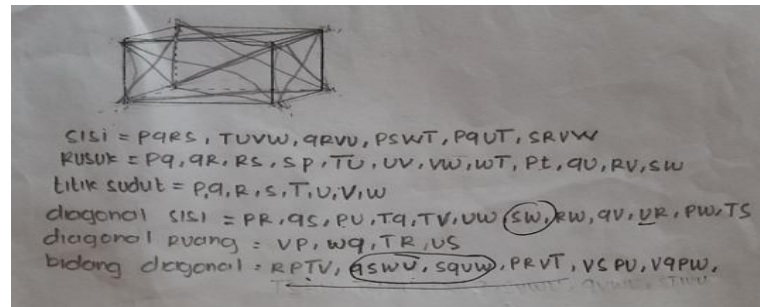 sisi = PQRS, TUVW, QRVU, PSWT, PQUT, SRVW
Rusuk = PQ, QR, RS, SP, TU, UV, VW, WT, Pt, QU, RV, SW
titik sudut = P,Q,R,S,T,U,V,W
diagonal sisi = PR, QS, PU, TQ, TV, UW, SW, RW, QV, UR, PW, TS
diagonal Ruang = VP, WQ, TR, US
bidang diagonal = RPTV, QSWU, SQUW, PRVT, VSPU, VQPW,